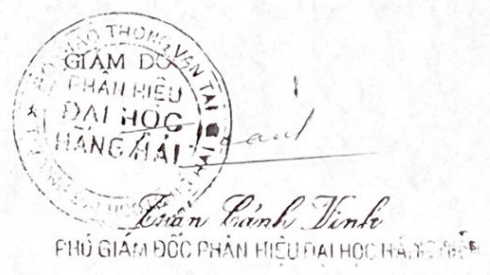 BỘ GIAO THÔNG VẬN TẢI
GIÁM ĐỐC
PHÂN HIỆU
ĐẠI HỌC
HÀNG HẢI
Trần Cảnh Vinh
PHÓ GIÁM ĐỐC PHÂN HIỆU ĐẠI HỌC HÀNG HẢI